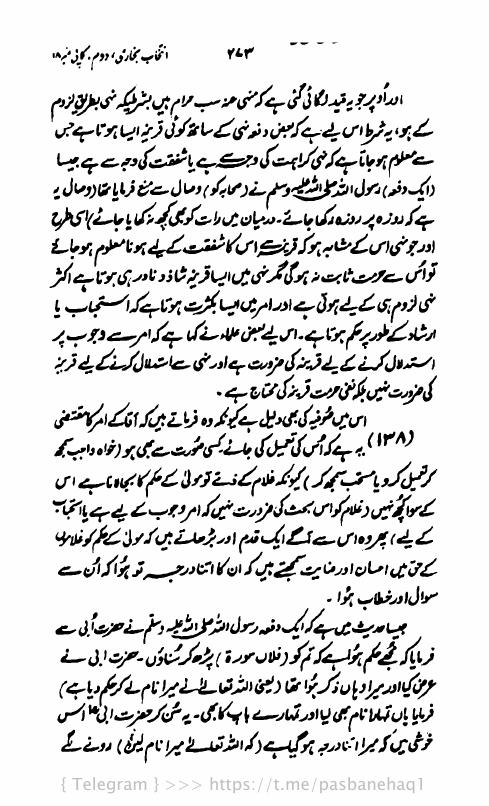 انتخاب بخاری، دوم، کاپی نمبر ۱۸
۲۷۳
اور اُوپر جو یہ قید لگائی گئی ہے کہ منہی عنہ سب حرام ہیں بشرطیکہ نہی بطریق لزوم
کے ہو، یہ شرط اس لیے ہے کہ بعض دفعہ نہی کے ساتھ کوئی قرینہ ایسا ہوتا ہے جس
سے معلوم ہو جاتا ہے کہ نہی کراہت کی وجہ سے ہے یا شفقت کی وجہ سے ہے جیسا
(ایک دفعہ) رسول اللہ صلی اللہ علیہ وسلم نے (صحابہ کو) وصال سے منع فرمایا تھا (وصال یہ
ہے کہ روزہ پر روزہ رکھا جائے۔ درمیان میں رات کو بھی کچھ نہ کھایا جائے) اسی طرح
اور جو نہی اس کے مشابہ ہو کہ قرینہ سے اس کا شفقت کے لیے ہونا معلوم ہو جائے
تو اُس سے حرمت ثابت نہ ہوگی مگر نہی میں ایسا قرینہ شاذ و نادر ہی ہوتا ہے اکثر
نہی لزوم ہی کے لیے ہوتی ہے اور امر میں ایسا بکثرت ہوتا ہے کہ استحباب یا
ارشاد کے طور پر حکم ہوتا ہے۔ اس لیے بعض علماء نے کہا ہے کہ امر سے وجوب پر
استدلال کرنے کے لیے قرینہ کی ضرورت ہے اور نہی سے استدلال کرنے کے لیے قرینہ
کی ضرورت نہیں بلکہ نفی حرمت قرینہ کی محتاج ہے۔
اس میں صُوفیہ کی بھی دلیل ہے کیونکہ وہ فرماتے ہیں کہ آقا کے امر کا مقتضی
(۱۳۸) یہ ہے کہ اُس کی تعمیل کی جائے کسی صُورت سے بھی ہو (خواہ واجب سمجھ
کر تعمیل کرو یا مستحب سمجھ کر) کیونکہ غلام کے ذمے تو مولیٰ کے حکم کا بجا لانا ہے اس
کے سوا کچھ نہیں (غلام کو اس بحث کی ضرورت نہیں کہ امر وجوب کے لیے ہے یا استحباب
کے لیے) پھر وہ اس سے آگے ایک قدم اور بڑھاتے ہیں کہ مولیٰ کے حکم کو غلاموں
کے حق میں احسان اور عنایت سمجھتے ہیں کہ ان کا اتنا درجہ تو ہُوا کہ اُن سے
سوال اور خطاب ہُوا۔
جیسا حدیث میں ہے کہ ایک دفعہ رسول اللہ صلی اللہ علیہ وسلم نے حضرت اُبی سے
فرمایا کہ مجھے حکم ہوا ہے کہ تم کو (فلاں سورۃ) پڑھ کر سُناؤں۔ حضرت ابی نے
عرض کیا اور میرا وہاں ذکر ہُوا تھا (یعنی اللہ تعالےٰ نے میرا نام لے کر حکم دیا ہے)
فرمایا ہاں تمہارا نام بھی لیا اور تمہارے باپ کا بھی۔ یہ سُن کر حضرت ابیؓ اس
خوشی میں کہ میرا اتنا درجہ ہو گیا ہے (کہ اللہ تعالےٰ میرا نام لیں) رونے لگے
{ Telegram } >>> https://t.me/pasbanehaq1